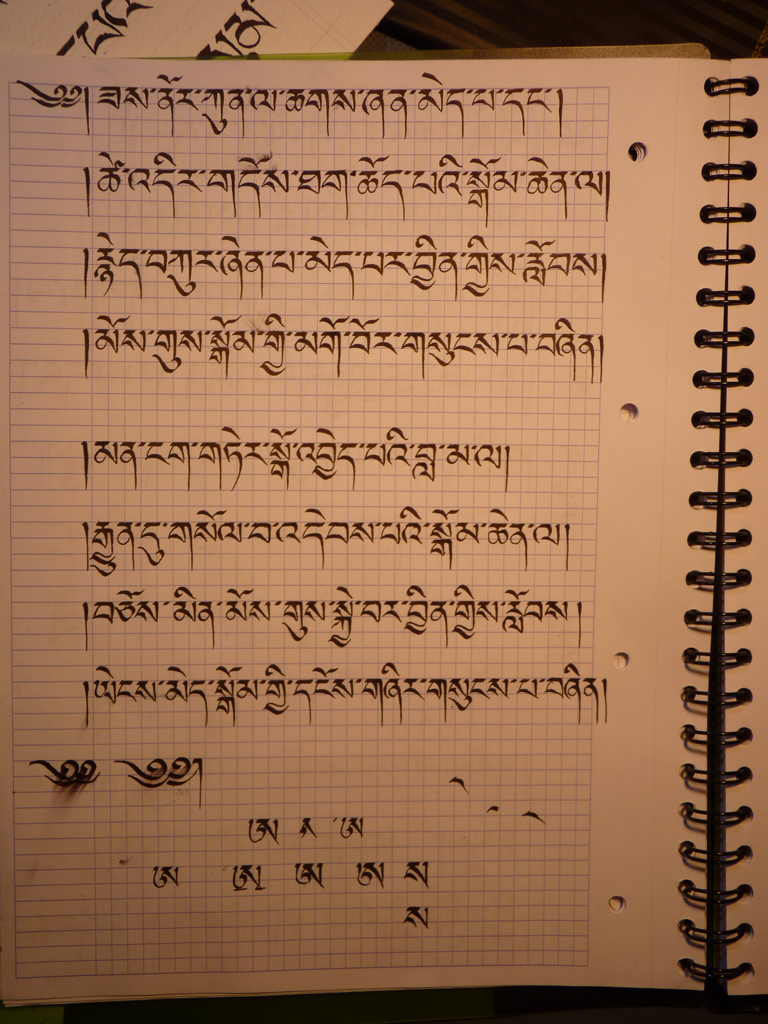 ༄༅། ཟས་ནོར་ཀུན་ལ་ཆགས་ཞན་མེད་པ་དང་།
།ཚེ་འདིར་གདོས་ཐག་ཆོད་པའི་སྒོམ་ཆེན་ལ།
།རྙེད་བཀུར་ཞེན་པ་མེད་པར་བྱིན་གྱིས་རློབས།
།མོས་གུས་སྒོམ་གྱི་མགོ་བོར་གསུངས་པ་བཞིན།
།མན་ངག་གཏེར་སྒོ་འབྱེད་པའི་བླ་མ་ལ།
།རྒྱུན་དུ་གསོལ་བ་འདེབས་པའི་སྒོམ་ཆེན་ལ།
།བཅོས་མིན་མོས་གུས་སྐྱེ་བར་བྱིན་གྱིས་རློབས།
།ཡེངས་མེད་སྒོམ་གྱི་དངོས་གཞིར་གསུངས་པ་བཞིན།
༄༅ ༄༅།
ཨ ཨ
ཨ ཨ ཨ ཨ ས
ས